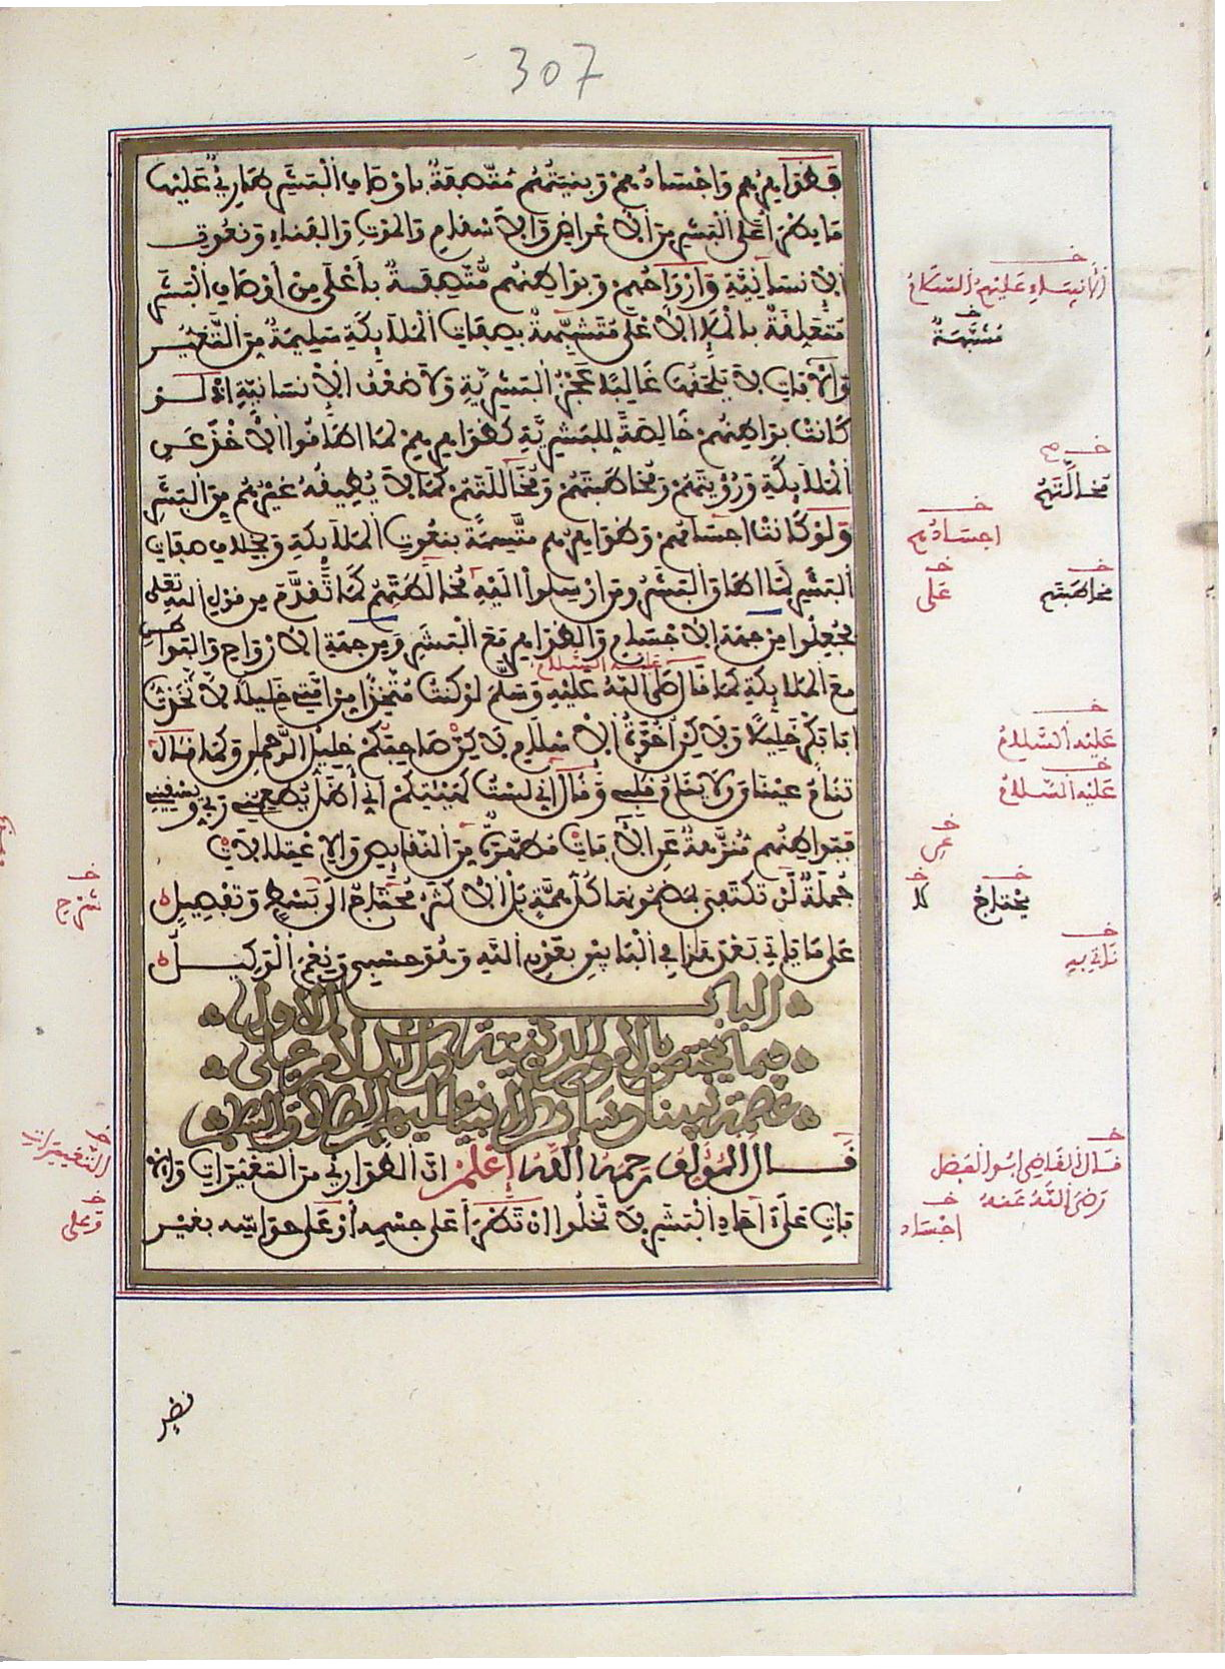 307
فظواهرهم واجسادهم وبنيتهم متصفة باوصاف البشر طارئ عليها
ما يطرأ على البشر من الاعراض والاسقام والموت والفناء ونعوت
الانسانية وارواحهم وبواطنهم متصفة بأعلى من أوصاف البشر
متعلقة بالملإ الأعلى متشبهة بصفات الملائكة سليمة من التغير
والآفات لا يلحقها غالبا عجز البشرية ولا ضعف الانسانية اذ لو
كانت بواطنهم خالصة للبشرية كظواهرهم لما اطاقوا الاخذ عن
الملائكة ورؤيتهم ومخاطبتهم ومخاللتهم كما لا يطيقه غيرهم من البشر
ولو كانت اجسامهم وظواهرهم متسمة بنعوت الملائكة وبخلاف صفات
البشر لما اطاق البشر ومن ارسلوا اليه مخالطتهم كما تقدم من قول الله تعلى
فجعلوا من جهة الاجسام والظواهر مع البشر ومن جهة الارواح والبواطن
مع الملائكة كما قال صلى الله عليه وسلم لو كنت متخذا من امتي خليلا لاتخذت
ابا بكر خليلا ولاكن اخوة الاسلام لاكن صاحبكم خليل الرحمن وكما قال
تنام عيناي ولا ينام قلبي وقال اني لست كهيئتكم اني أظل يطعمني ربي ويسقيني
فبواطنهم منزهة عن الآفات مطهرة من النقايص والاعتلالات
جملة لن تكتفي بمضمونها كل همة بل الاكثر محتاج الى بسط وتفصيل
على ما ياتي بعد هذا في البابين بعون الله وهو حسبي ونعم الوكيل
الباب الاول
فيما يختص بالامور الدينية والكلام على
عصمة نبينا وسائر الانبياء عليهم الصلاة والسلام
قال المؤلف رحمه الله اعلم ان الطوارئ من التغيرات والا
فات على آحاد البشر لا تخلوا ان تطرأ على جسمه أو على حواسه بغير
الانبياء عليهم السلام
مشبهة
مخالتهم
اجسادهم
مخاطبتهم
على
عليه السلام
عليه السلام
يحتاج
ناتي به
شرح
قال القاضي ابو الفضل
رضي الله عنه
اجساد
التغييرات
وعلى